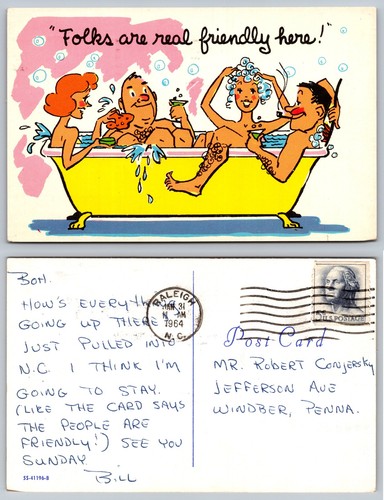 "Folks are real friendly here!"
BOH.
HOW'S EVERYTHING
GOING UP THERE
JUST PULLED INTO
N.C. I THINK I'M
GOING TO STAY.
(LIKE THE CARD SAYS
THE PEOPLE ARE
FRIENDLY!) SEE YOU
SUNDAY.
BILL
SS-41196-B
RALEIGH
31
AM
1964
N.C.
5¢ U.S. POSTAGE
Post Card
MR. ROBERT CONJERSKY
JEFFERSON AVE
WINDBER, PENNA.